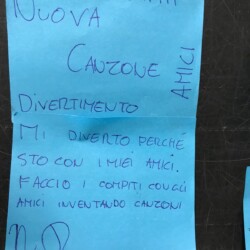 NUOVA
CANZONE
AMICI
DIVERTIMENTO
MI DIVERTO PERCHÉ
STO CON I MIEI AMICI.
FACCIO I COMPITI CON GLI
AMICI INVENTANDO CANZONI